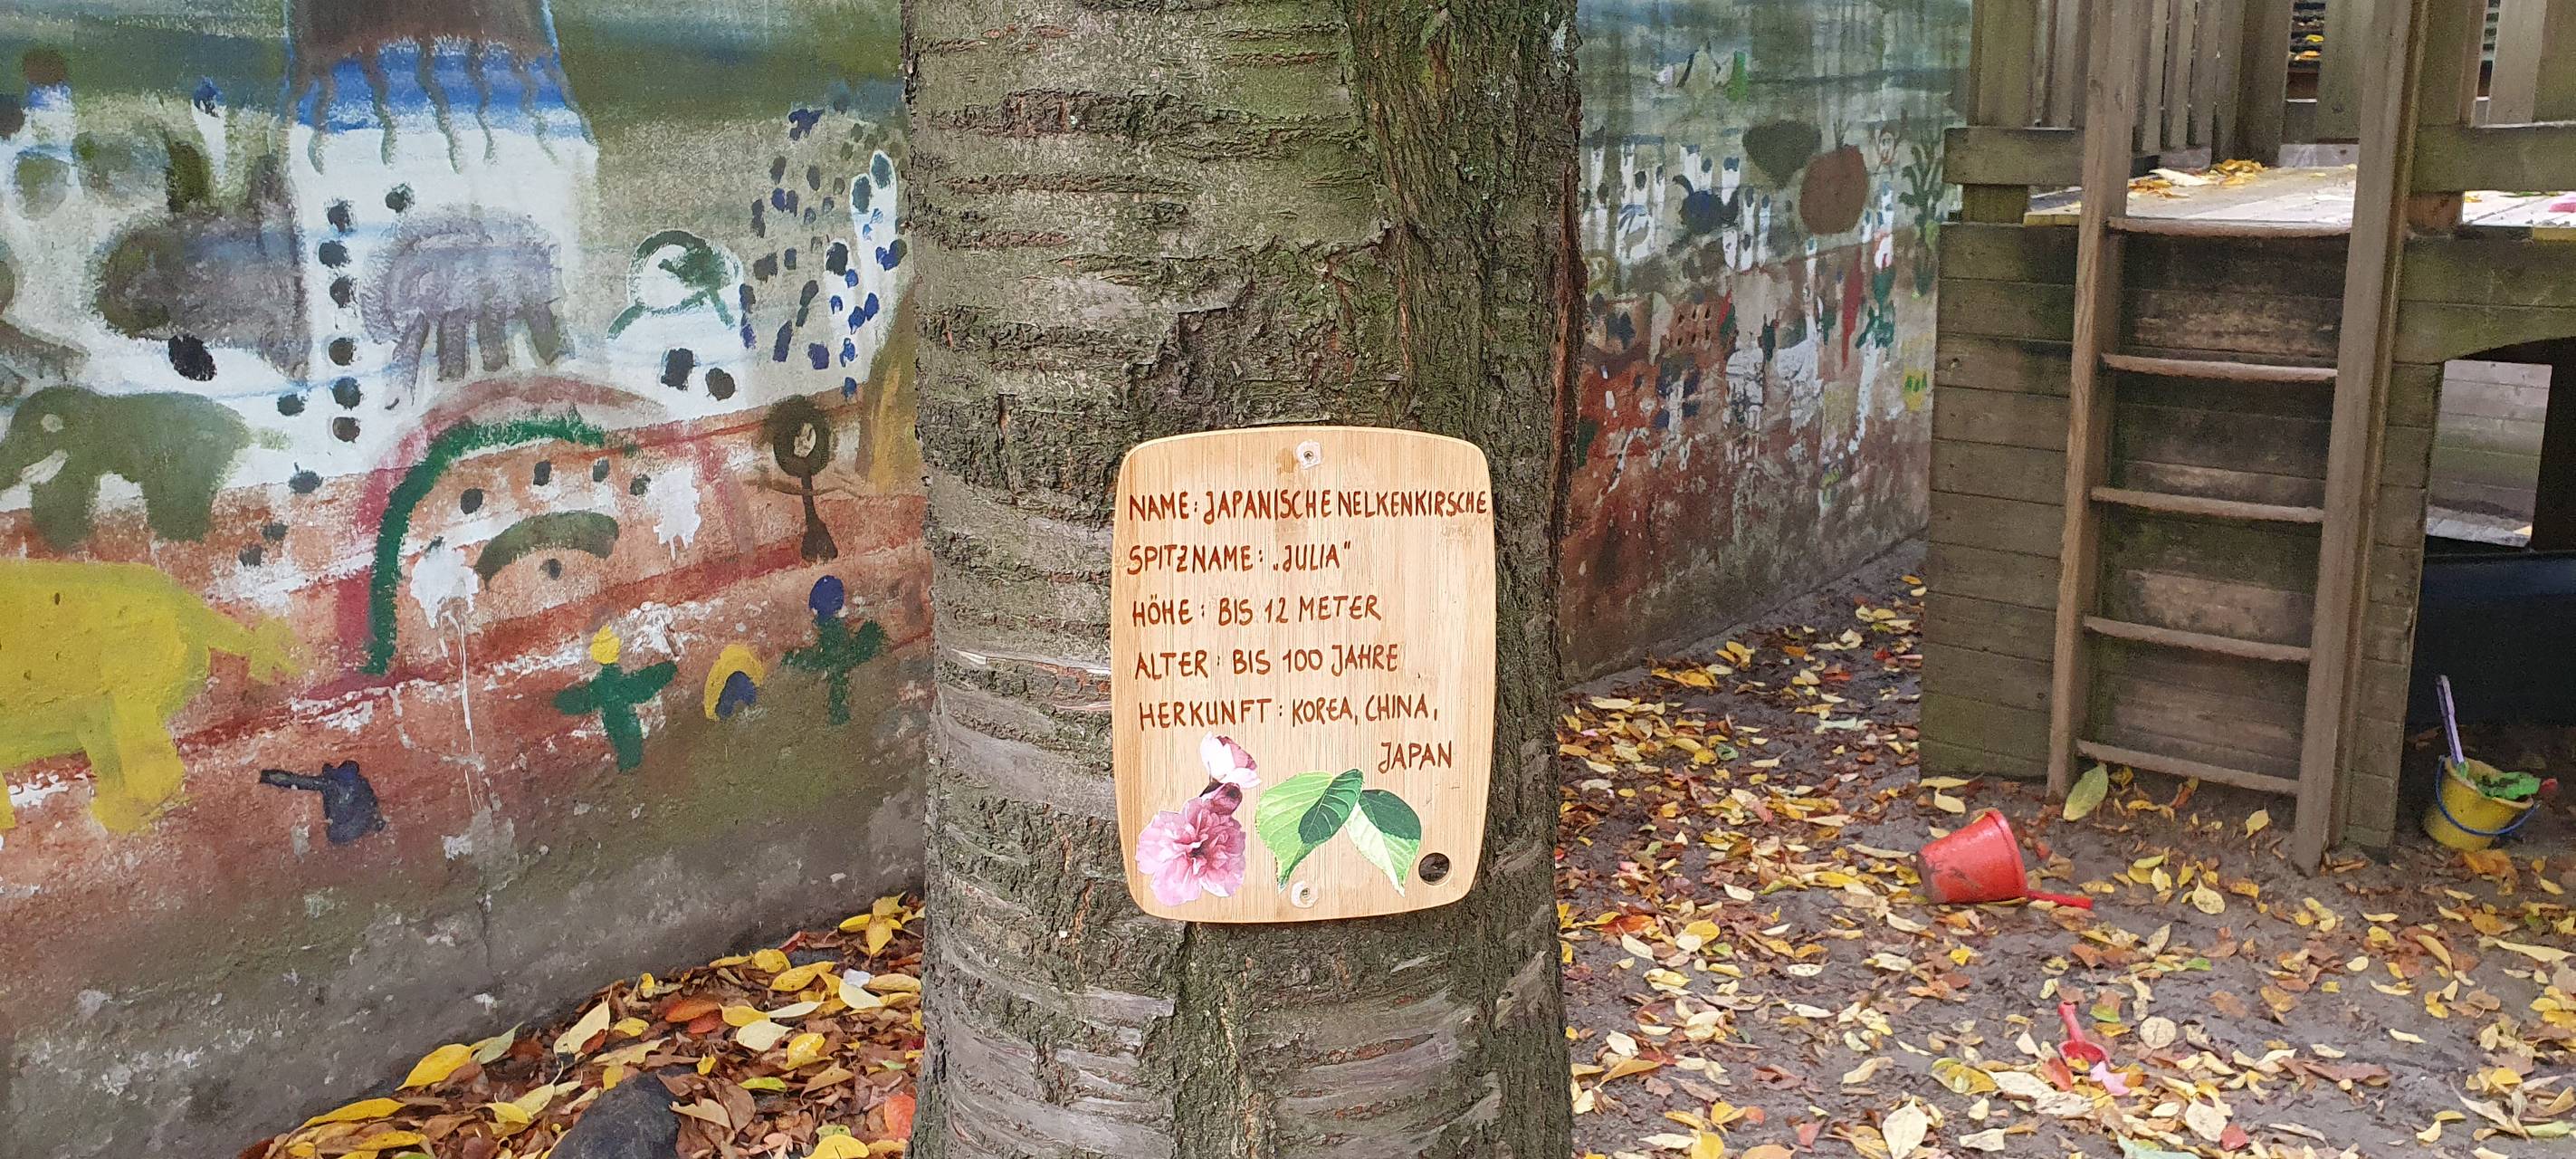 NAME: JAPANISCHE NELKENKIRSCHE
SPITZNAME: „JULIA“
HÖHE: BIS 12 METER
ALTER: BIS 100 JAHRE
HERKUNFT: KOREA, CHINA,
JAPAN